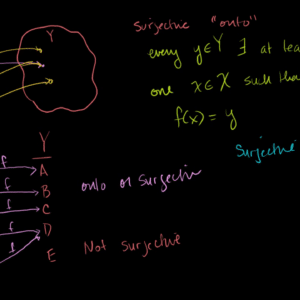 Surjective "onto"
Y
every y∈Y ∃ at lea
one x∈X such tha
f(x) = y
Surjective
Y
f A
f B
onto or surjectiv
f C
f D
f E
Not surjective